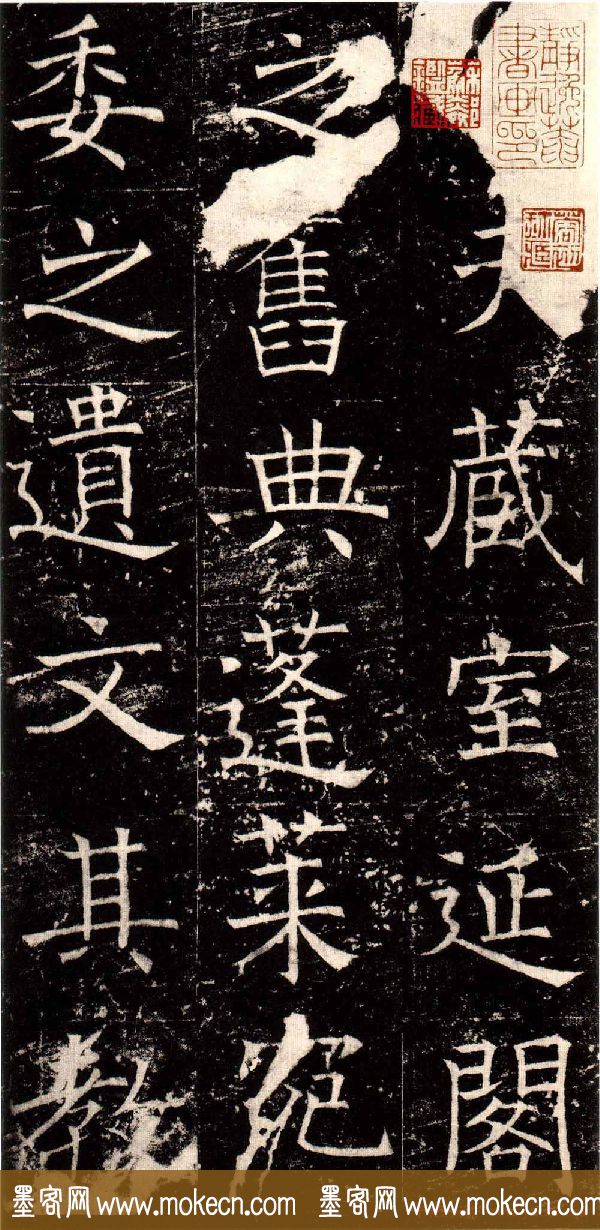 藏室延閣
之舊典蓬萊宛
委之遺文其教
墨客网 www.mokecn.com 墨客网 www.mokecn.com